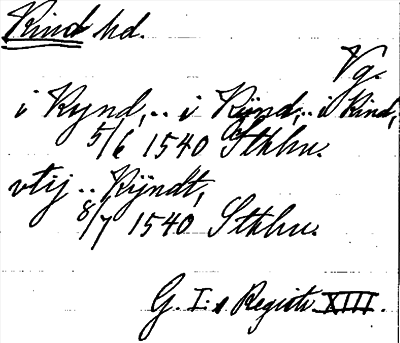 Kind hd.
Vg.
i Kynd, .. i Kijnd, .. i Kind,
5/6 1540 Sthlm.
vtij .. Kijndt,
8/7 1540 Sthlm.
G. I:s Registr. XIII.